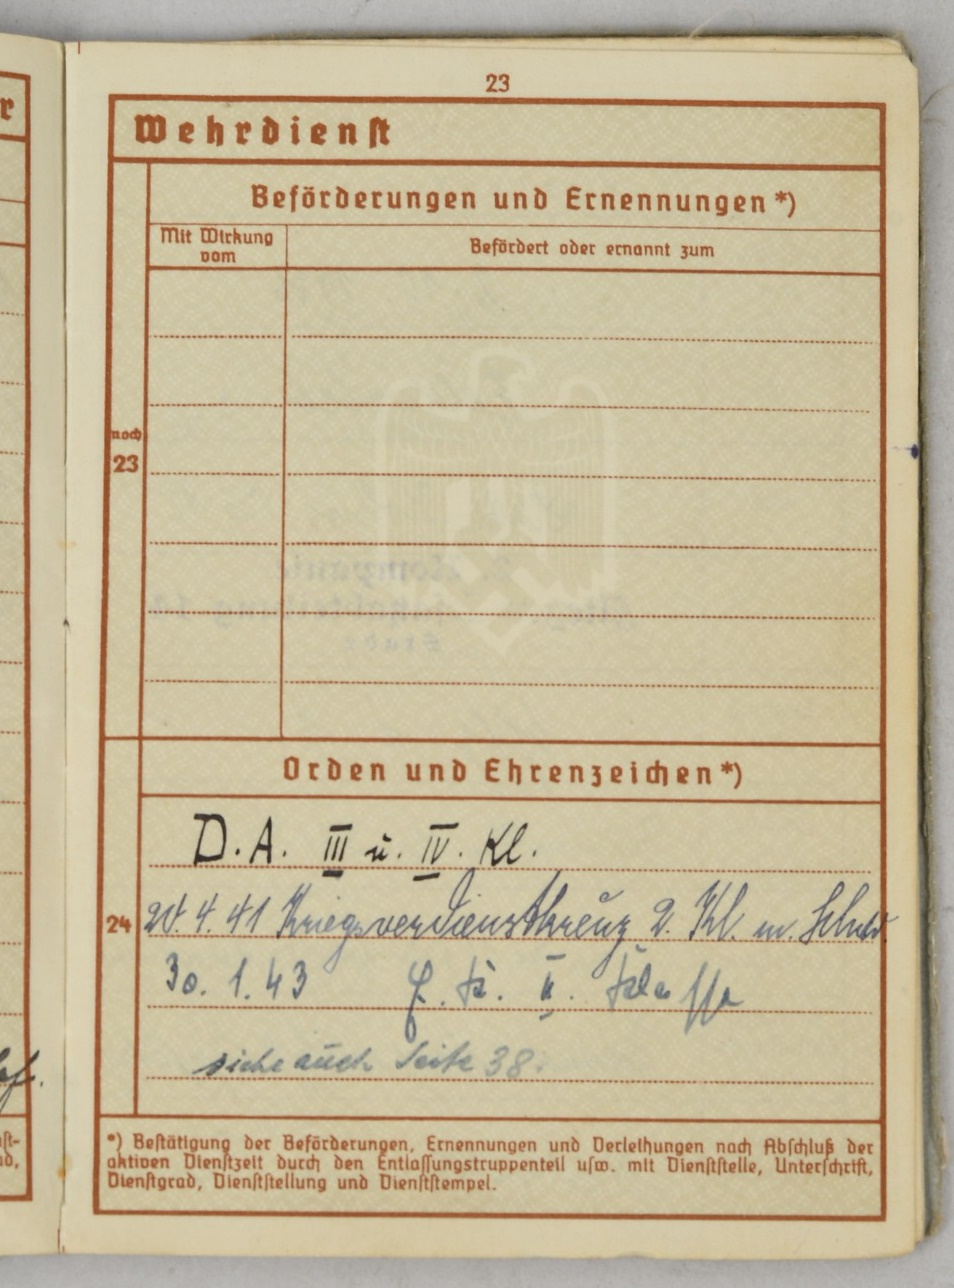 r
23
Wehrdienst
Beförderungen und Ernennungen *)
Mit Wirkung
vom
Befördert oder ernannt zum
noch
23
Orden und Ehrenzeichen *)
D. A. III u. IV. Kl.
24
4. 41 Kriegsverdienstkreuz 2. Kl. m.
30. 1. 43 E. K. II. Klasse
siehe auch Seite 38.
*) Bestätigung der Beförderungen, Ernennungen und Verleihungen nach Abschluß der
aktiven Dienstzeit durch den Entlassungstruppenteil usw. mit Dienststelle, Unterschrift,
Dienstgrad, Dienststellung und Dienststempel.